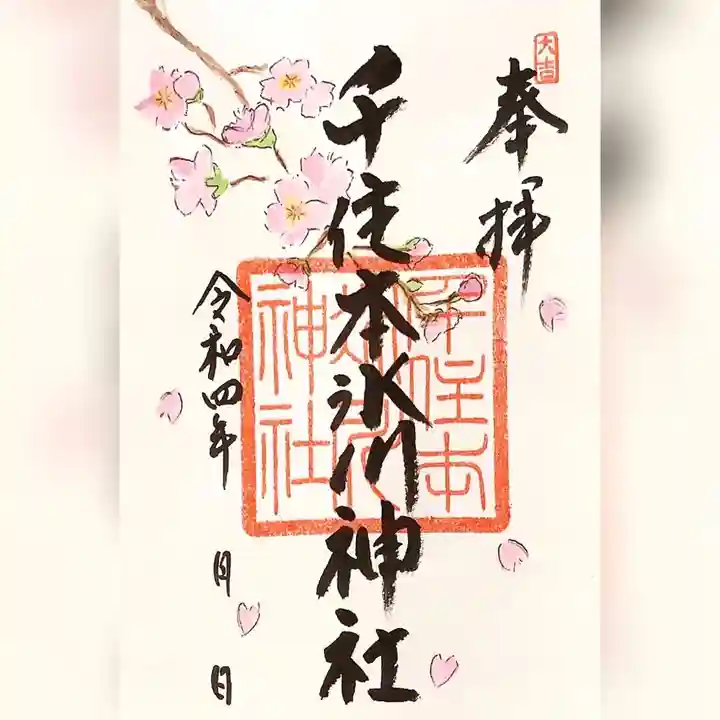 大吉
奉拝
千住本氷川神社
千住本
氷川
神社
令和四年 月 日